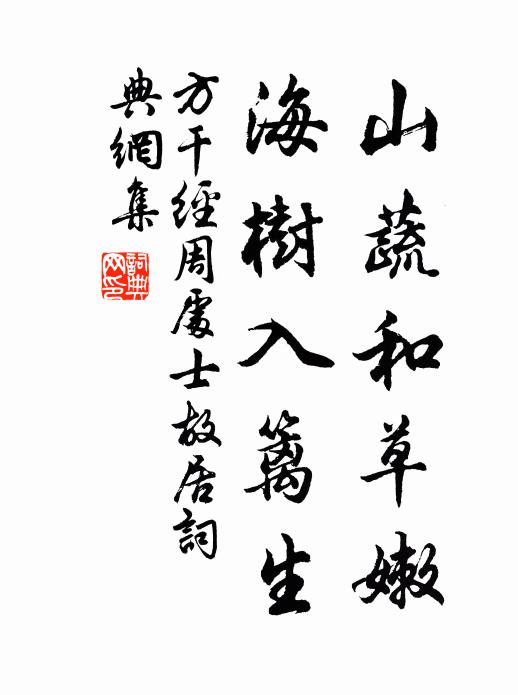 山蔬和草嫩
海樹入籬生
方干經周處士故居詞
典網集
詞典
网印